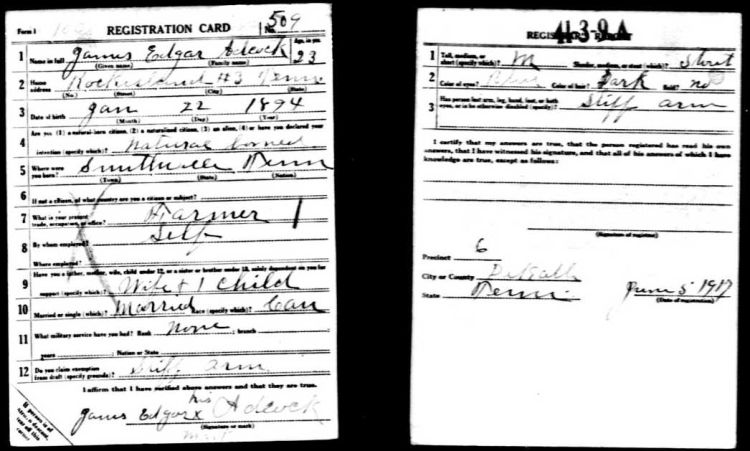 Form 1
REGISTRATION CARD
No. 509
1 Name in full James Edgar Adcock
(Given name) (Family name)
Age, in yrs. 23
2 Home address #3 Tenn
(No.) (Street) (City) (State)
3 Date of birth Jan 22 1894
(Month) (Day) (Year)
4 Are you (1) a natural-born citizen, (2) a naturalized citizen, (3) an alien, (4) or have you declared your
intention (specify which)? Natural
5 Where were you born? Smithville Tenn
(Town) (State) (Nation)
6 If not a citizen, of what country are you a citizen or subject?
7 What is your present trade, occupation, or office? Farmer
8 By whom employed? Self
Where employed?
9 Have you a father, mother, wife, child under 12, or a sister or brother under 12, solely dependent on you for
support (specify which)? Wife + 1 Child
10 Married or single (which)? Married Race (specify which)? Cau
11 What military service have you had? Rank None ; branch
years ; Nation or State
12 Do you claim exemption from draft (specify grounds)? Stiff arm
I affirm that I have verified above answers and that they are true.
his
James Edgar x Adcock
(Signature or mark)
If person is of
African descent,
tear off this
corner
REGISTRAR'S REPORT
1 Tall, medium, or short (specify which)? M Slender, medium, or stout (which)? Stout
2 Color of eyes? Blue Color of hair? Dark Bald? no
3 Has person lost arm, leg, hand, foot, or both
eyes, or is he otherwise disabled (specify)? Stiff arm
I certify that my answers are true, that the person registered has read his own
answers, that I have witnessed his signature, and that all of his answers of which I have
knowledge are true, except as follows:
(Signature of registrar)
Precinct 6
City or County DeKalb
State Tenn.
June 5 1917
(Date of registration)